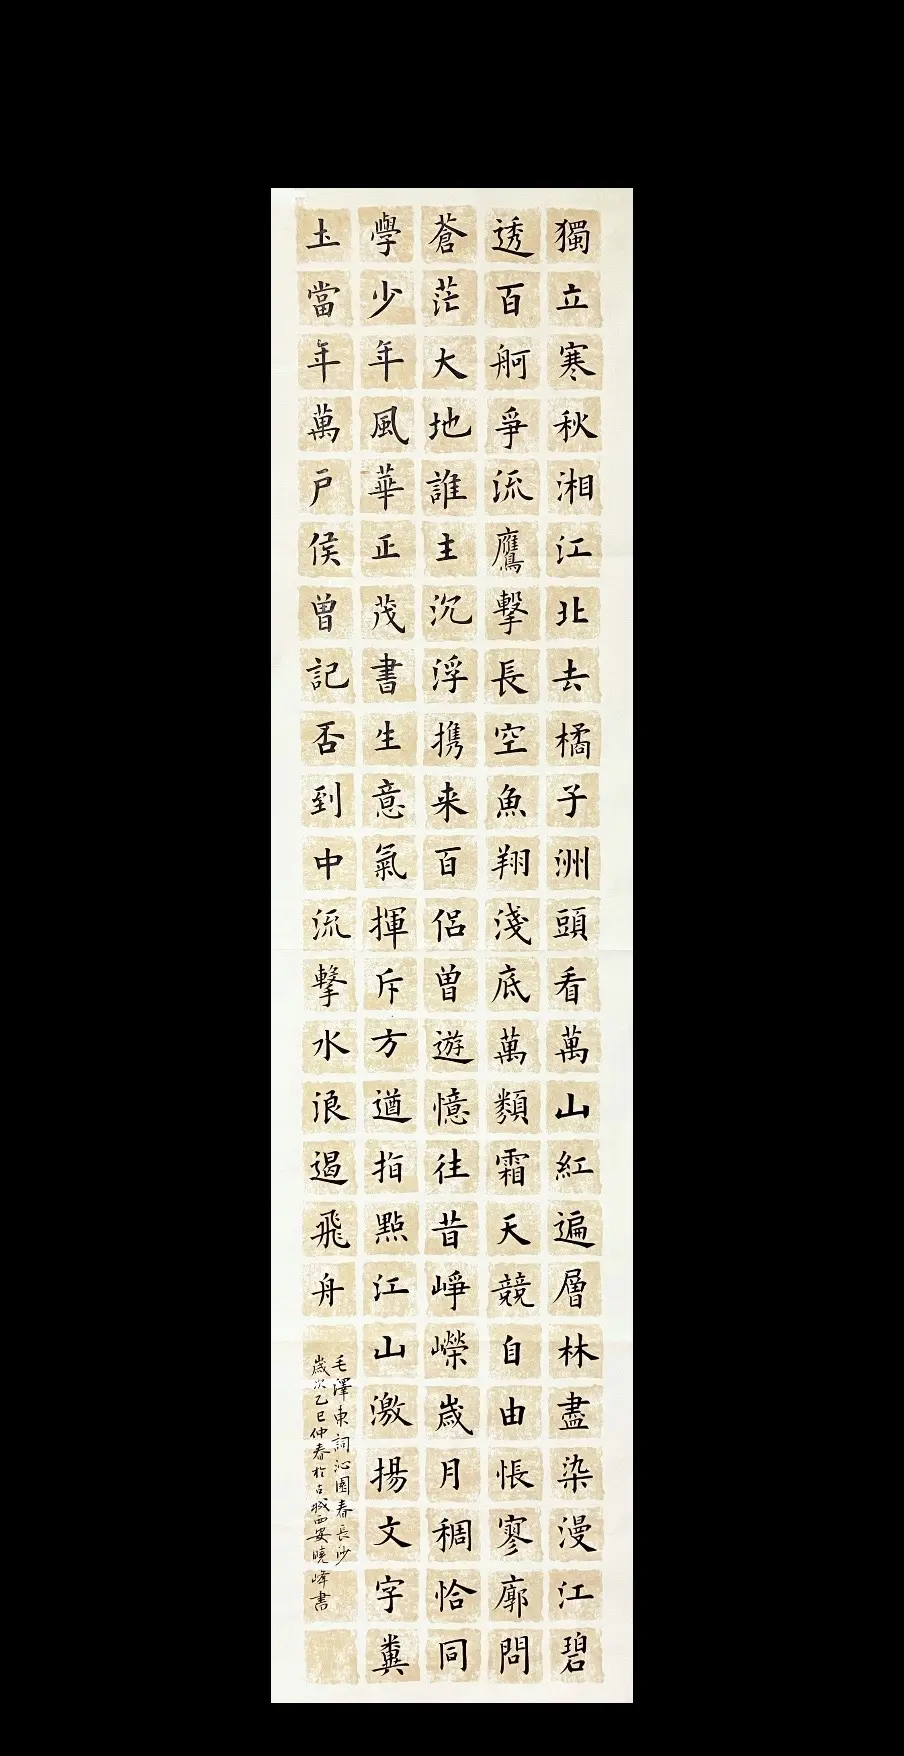 獨立寒秋湘江北去橘子洲頭看萬山紅遍層林盡染漫江碧
透百舸爭流鷹擊長空魚翔淺底萬類霜天競自由悵寥廓問
蒼茫大地誰主沉浮携来百侣曾遊憶往昔崢嶸歲月稠恰同
學少年風華正茂書生意氣揮斥方遒指點江山激揚文字糞
圡當年萬户侯曾記否到中流擊水浪遏飛舟
毛澤東詞沁園春長沙
歲次乙巳仲春於古城西安曉峰書